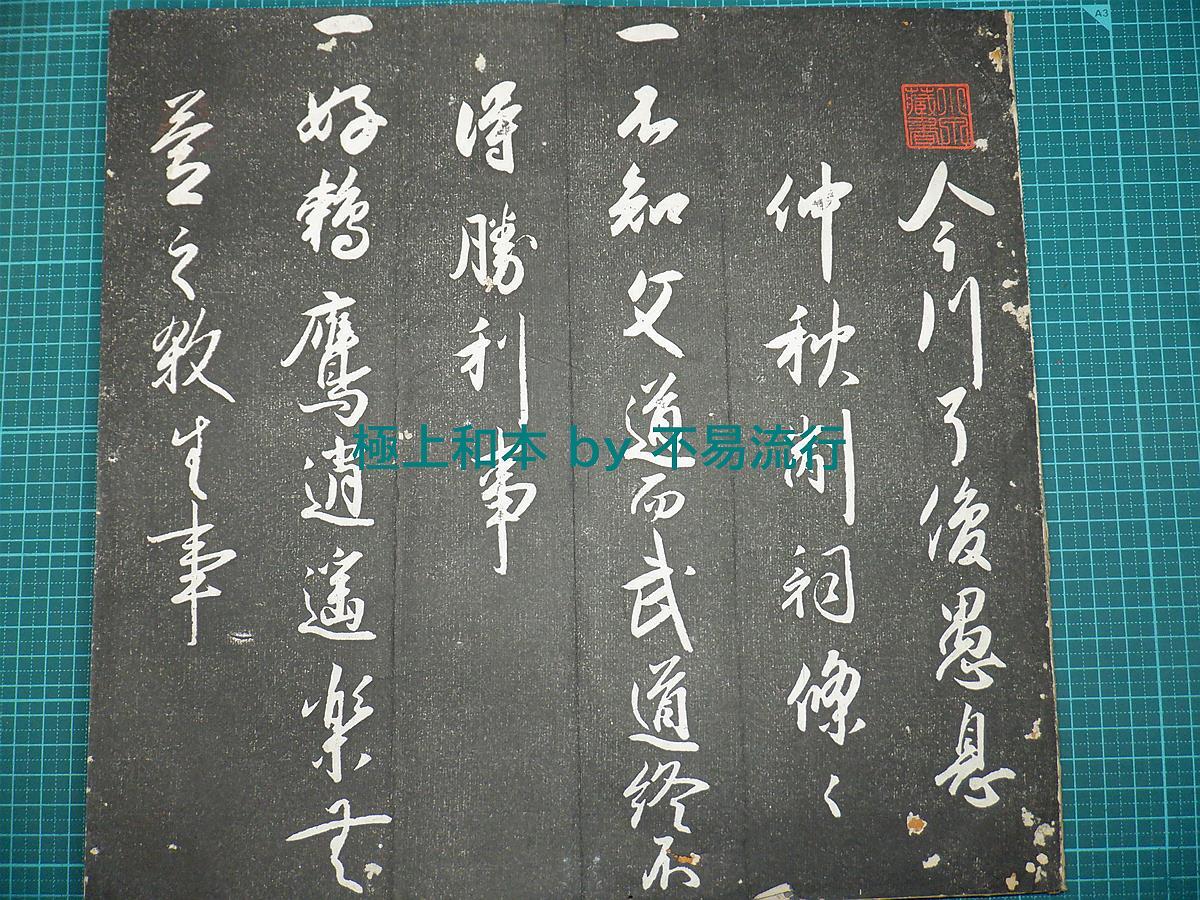 今川了俊愚息
仲秋制詞條々
一不知文道而武道終不
得勝利事
一好鵜鷹逍遥楽無
益之殺生事
藏書
極上和本 by 不易流行
A3